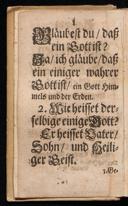 Gläubest du / daß
ein Gott ist?
Ja / ich gläube / daß
ein einiger wahrer
Gott ist / ein Gott Him-
mels und der Erden.
2. Wie heisset der-
selbige einige Gott?
Er heisset Vater /
Sohn / und Heili-
ger Geist.